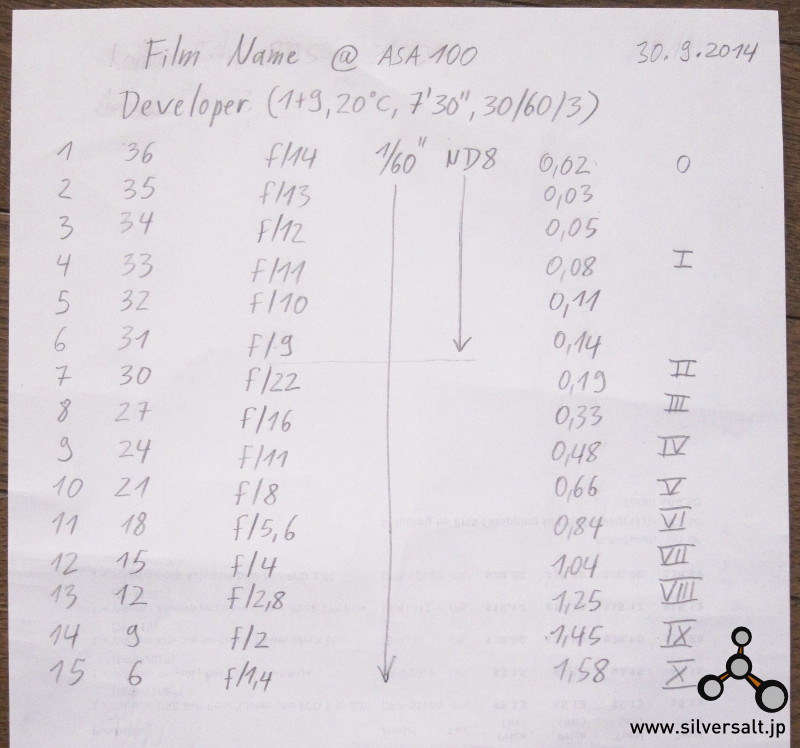 Film Name @ ASA 100 30.9.2014
Developer (1+9, 20°C, 7'30", 30/60/3)
1 36 f/14 1/60" ND8 0,02 0
2 35 f/13 0,03
3 34 f/12 0,05
4 33 f/11 0,08 I
5 32 f/10 0,11
6 31 f/9 0,14
7 30 f/22 0,19 II
8 27 f/16 0,33 III
9 24 f/11 0,48 IV
10 21 f/8 0,66 V
11 18 f/5,6 0,84 VI
12 15 f/4 1,04 VII
13 12 f/2,8 1,25 VIII
14 9 f/2 1,45 IX
15 6 f/1,4 1,58 X
www.silversalt.jp